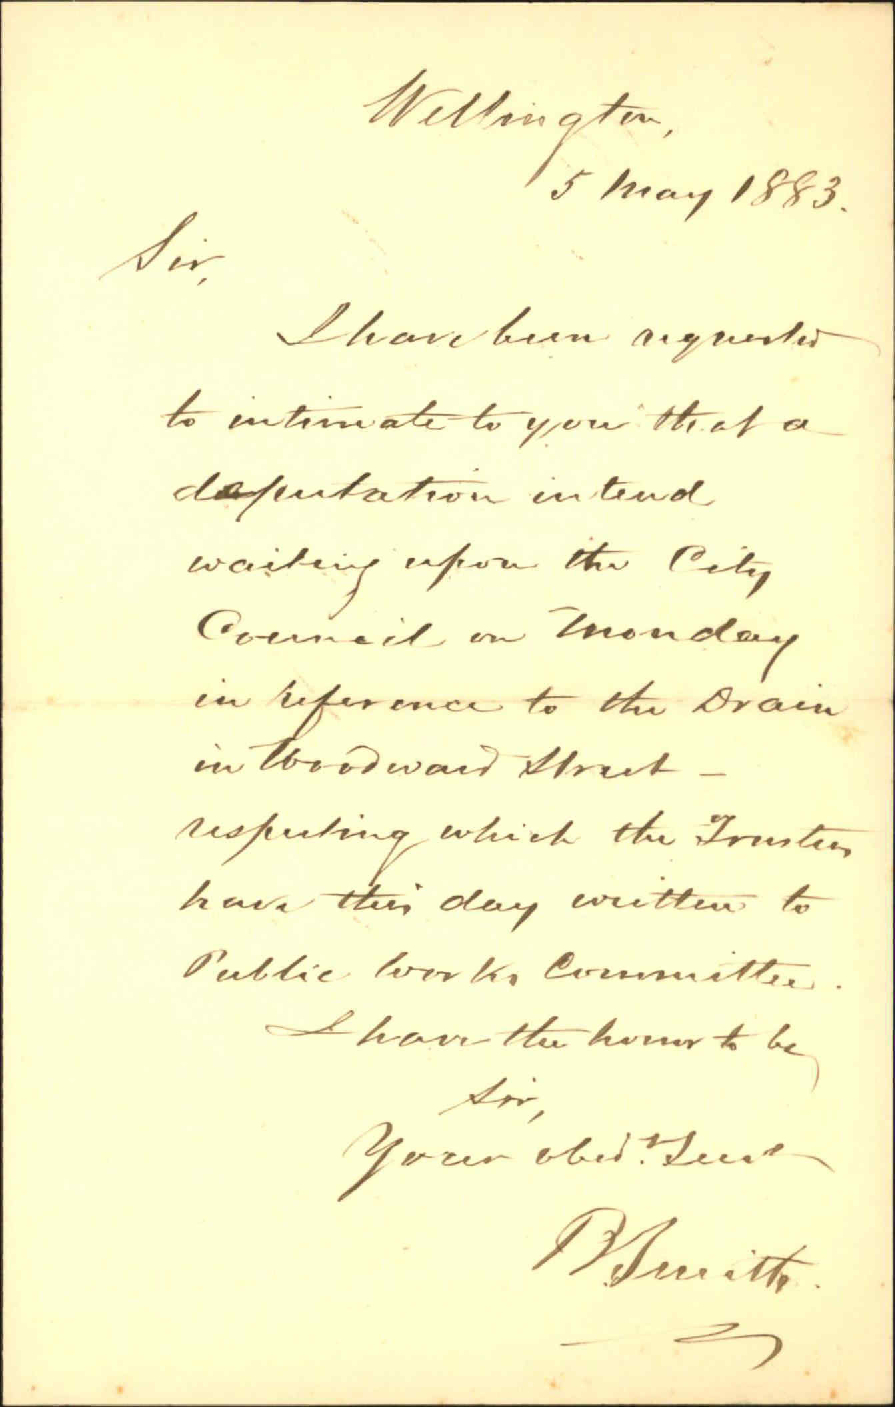 Wellington,
5 May 1883.
Sir,
I have been requested
to intimate to you that a
deputation intend
waiting upon the City
Council on Monday
in reference to the Drain
in Woodward Street –
respecting which the Trustees
have this day written to
Public Works Committee.
I have the honor to be,
Sir,
Your obedt. Servt
Smith.